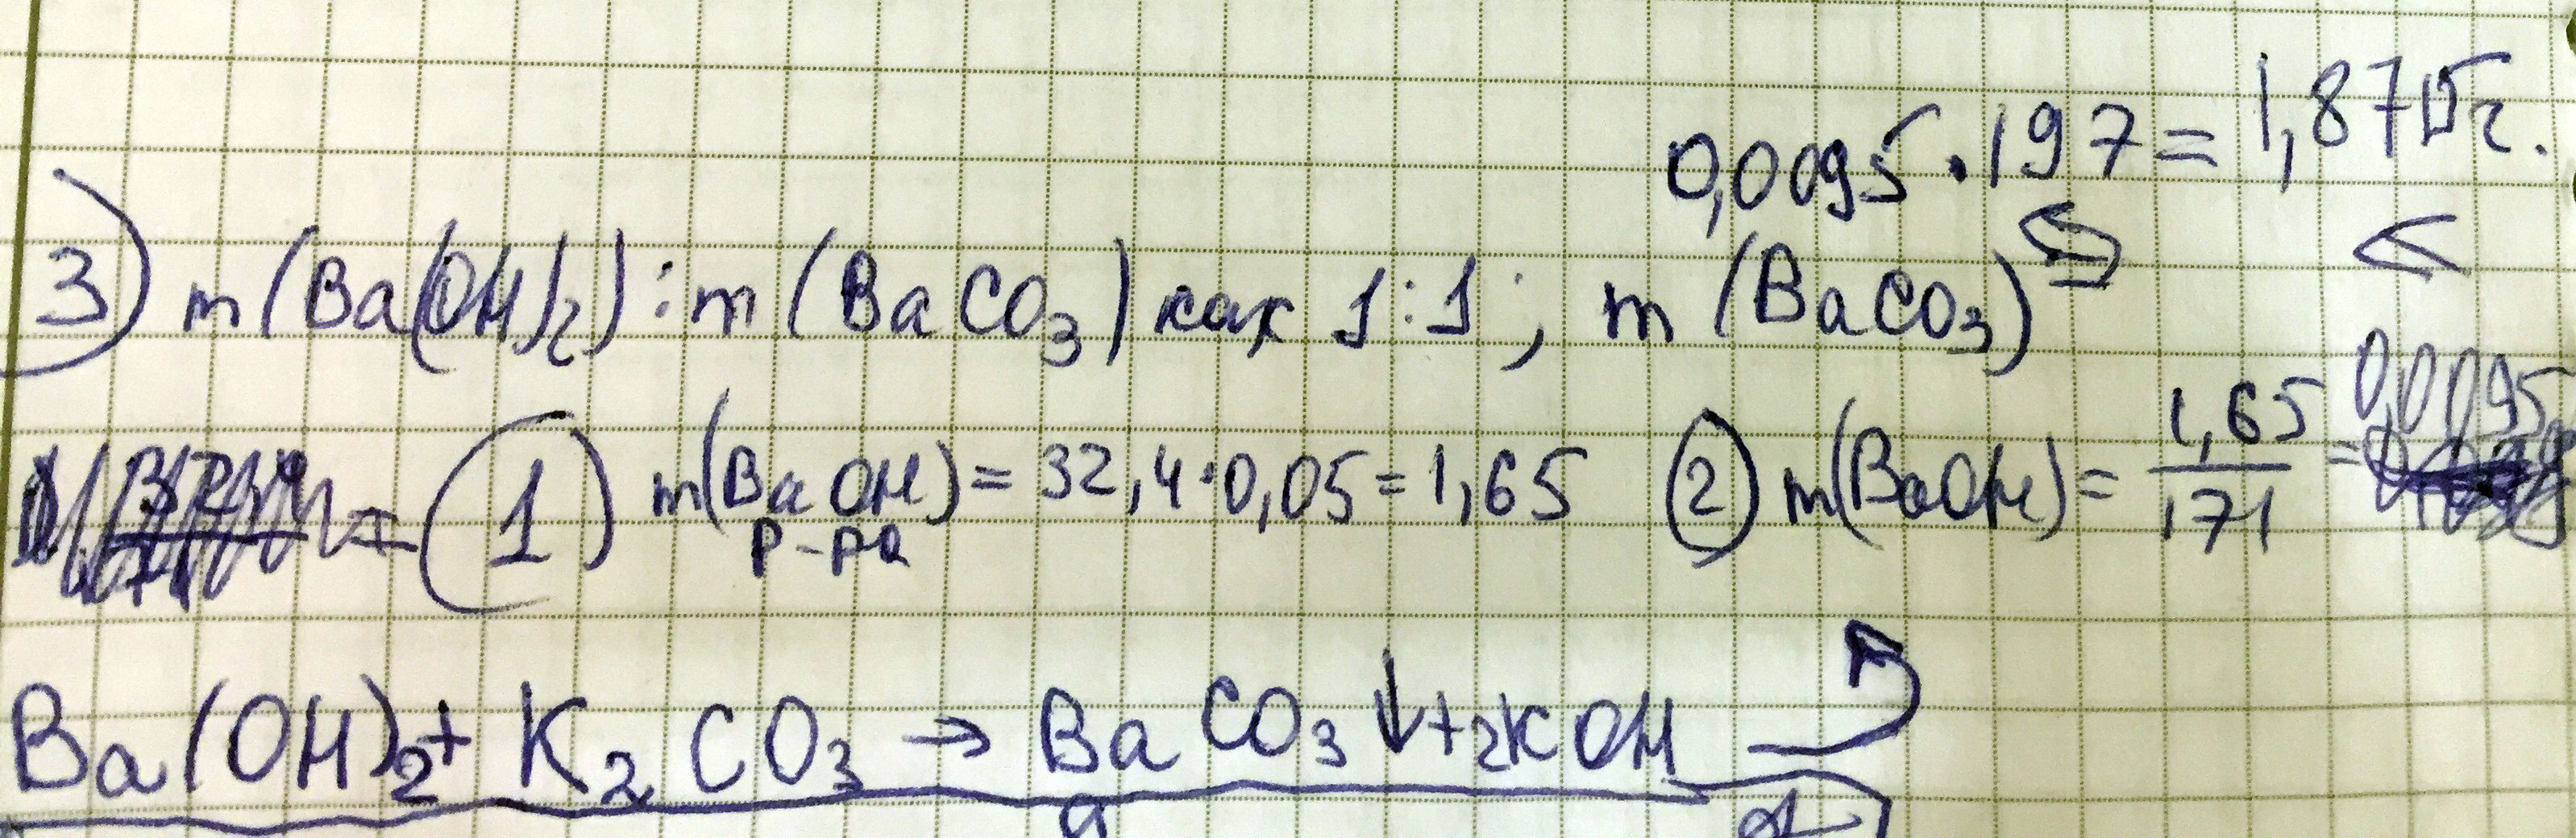 0,0095 · 197 = 1,87 г.
3) m(Ba(OH)2) : m(BaCO3) как 1:1; m(BaCO3)
(1) m(BaOH) = 32,4 · 0,05 = 1,65 (2) m(BaOH) = 1,65/171 = 0,0095
р-ра
Ba(OH)2 + K2CO3 → BaCO3↓ + 2KOH